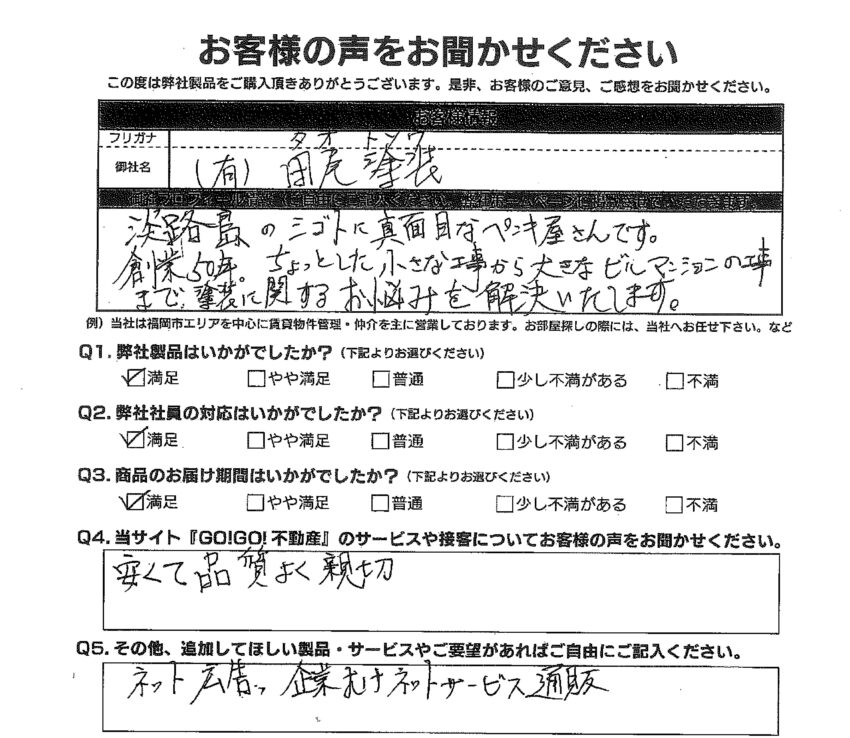 お客様の声をお聞かせください
この度は弊社製品をご購入頂きありがとうございます。是非、お客様のご意見、ご感想をお聞かせください。
お客様情報
フリガナ タオ トソウ
御社名 (有) 田尾塗装
淡路島のシゴトに真面目なペンキ屋さんです。
創業50年。ちょっとした小さな工事から大きなビルマンションの工事
まで、塗装に関するお悩みを解決いたします。
例）当社は福岡市エリアを中心に賃貸物件管理・仲介を主に営業しております。お部屋探しの際には、当社へお任せ下さい。など
Q1. 弊社製品はいかがでしたか？（下記よりお選びください）
☑満足 □やや満足 □普通 □少し不満がある □不満
Q2. 弊社社員の対応はいかがでしたか？（下記よりお選びください）
☑満足 □やや満足 □普通 □少し不満がある □不満
Q3. 商品のお届け期間はいかがでしたか？（下記よりお選びください）
☑満足 □やや満足 □普通 □少し不満がある □不満
Q4. 当サイト『GO!GO! 不動産』のサービスや接客についてお客様の声をお聞かせください。
安くて品質よく親切
Q5. その他、追加してほしい製品・サービスやご要望があればご自由にご記入ください。
ネット広告、企業むけネットサービス通販